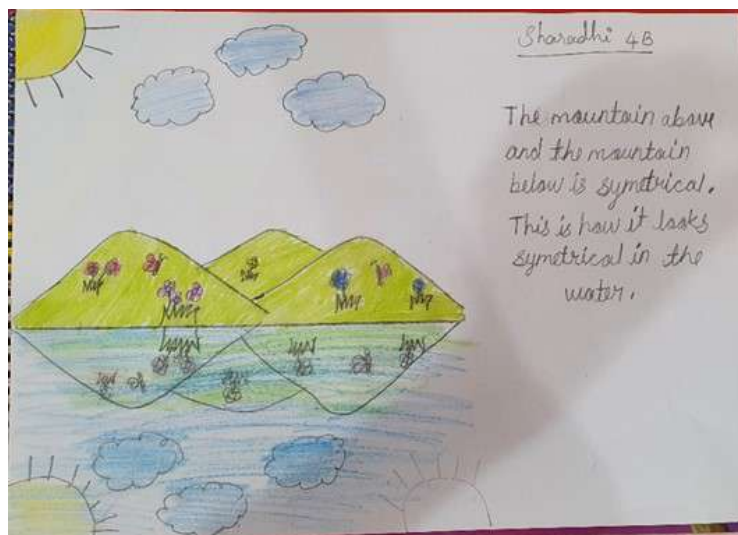 Sharadhi 4B
The mountain above
and the mountain
below is symetrical.
This is how it looks
symetrical in the
water.